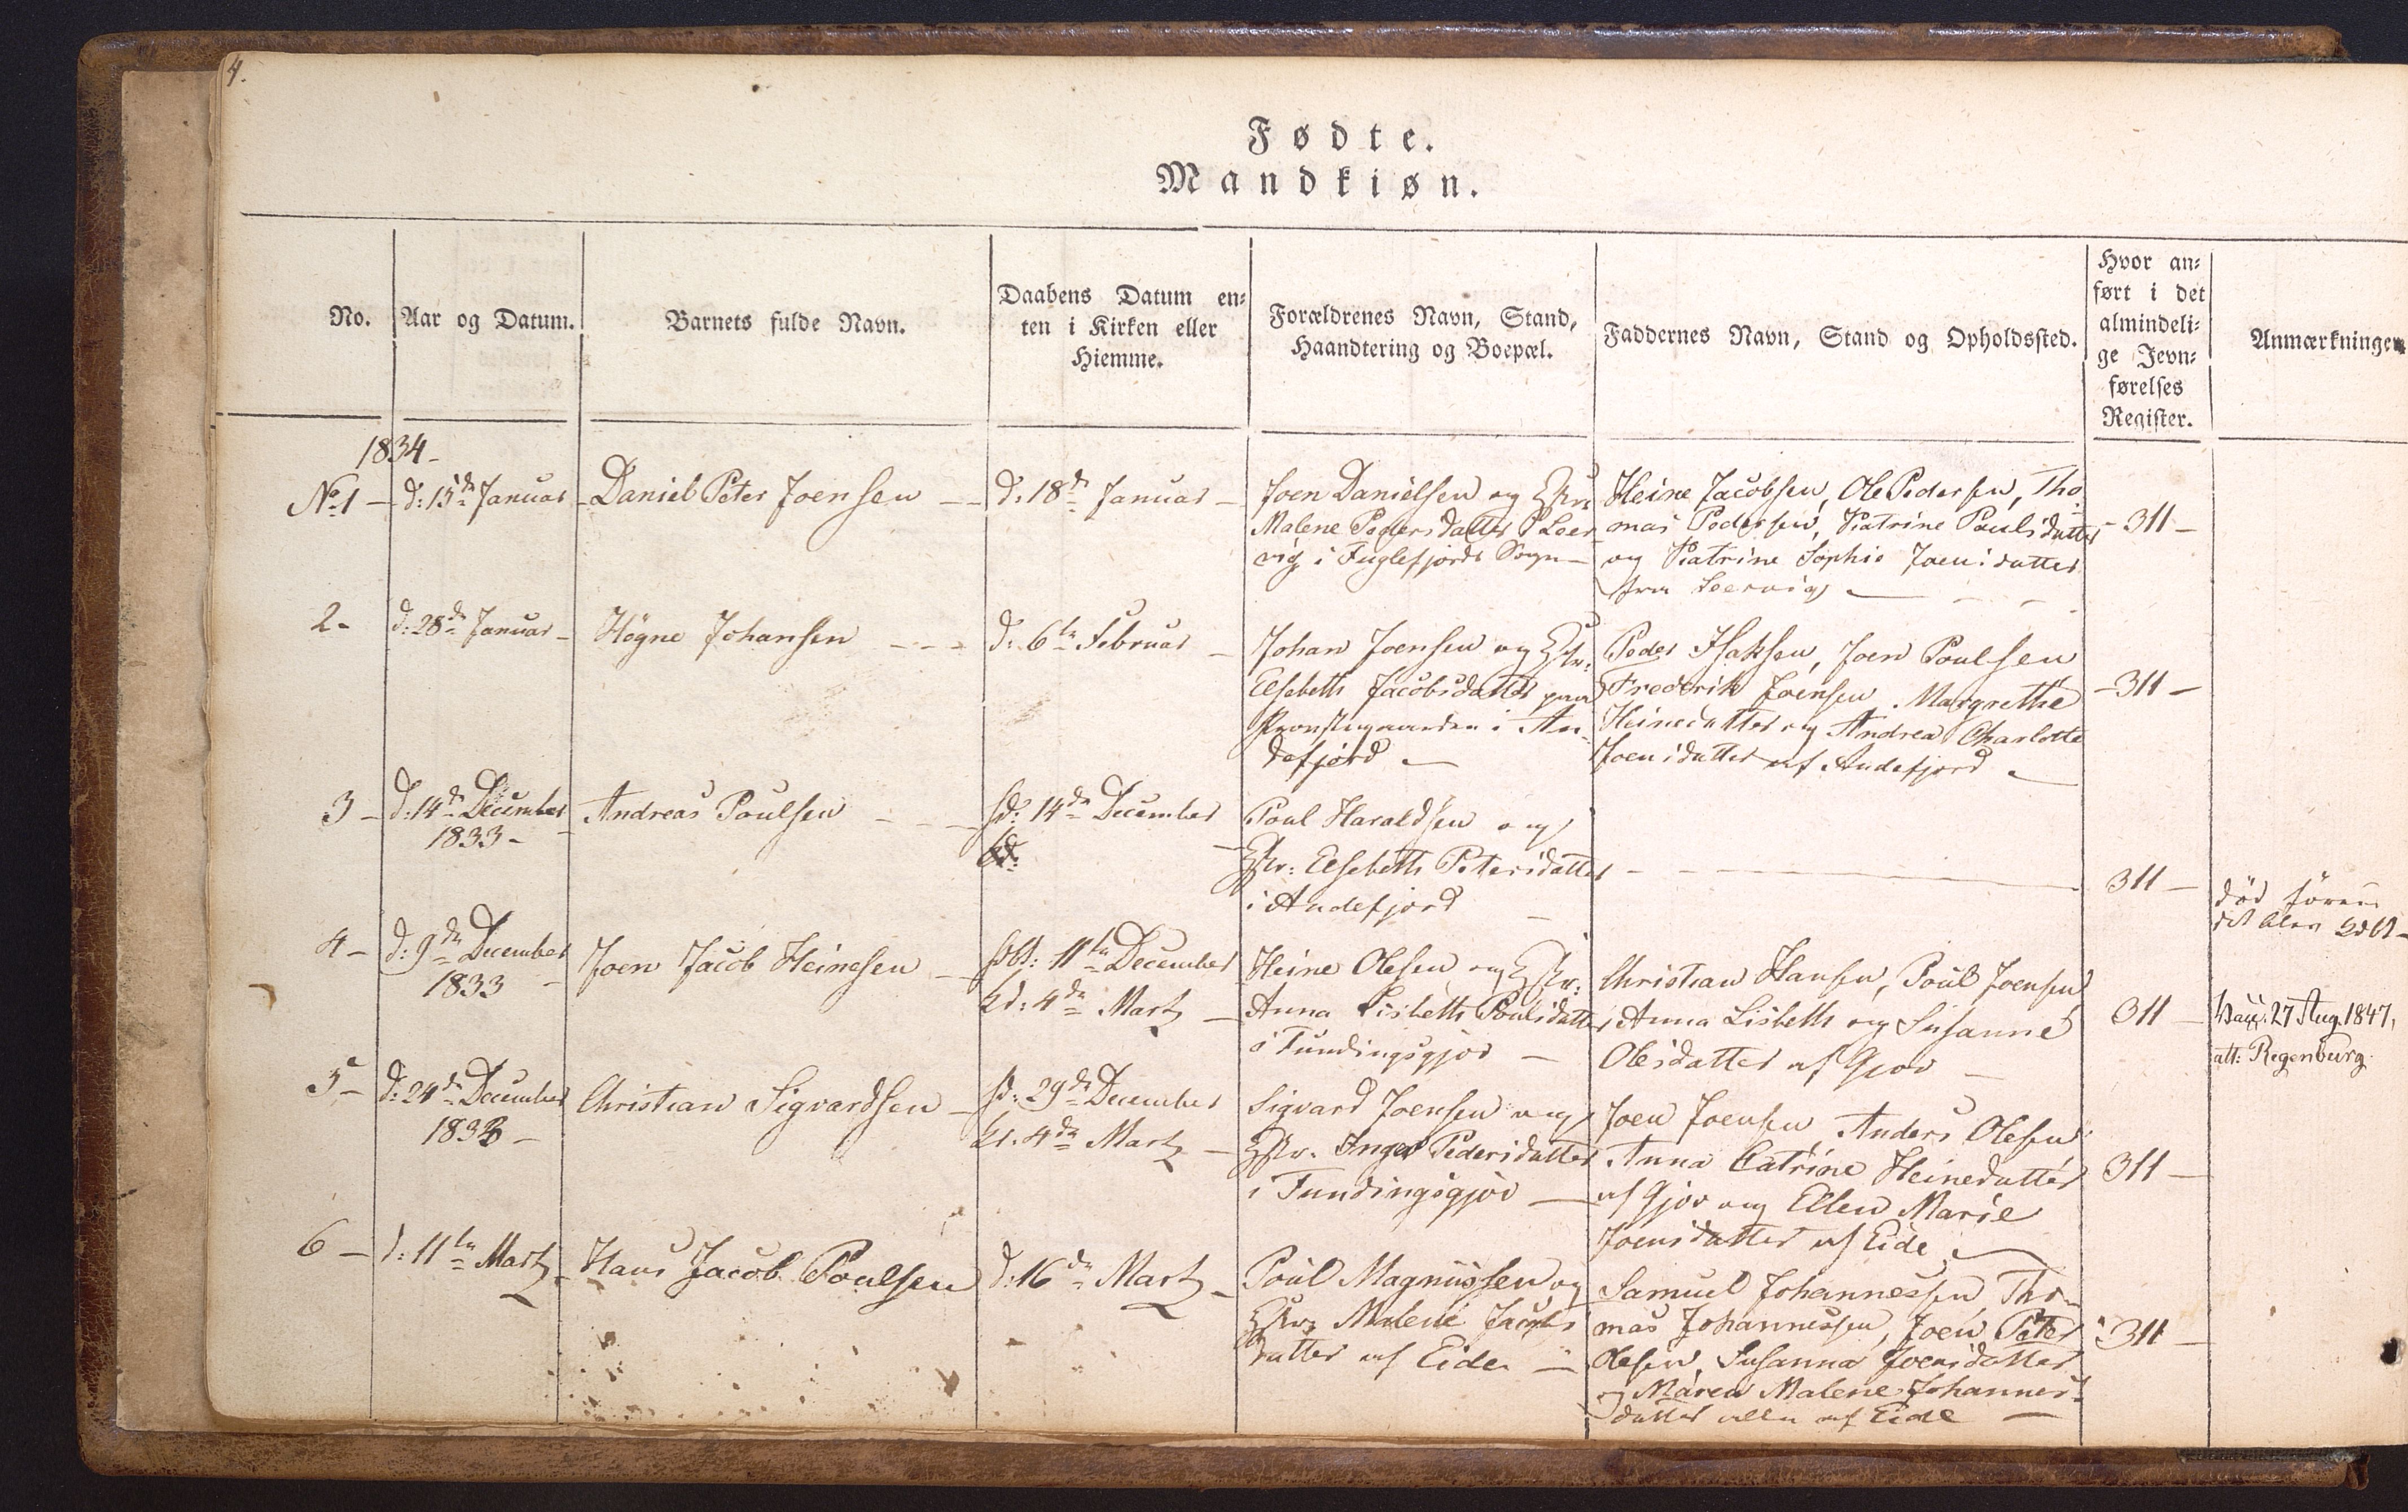 4.
Fødte.
Mandkiøn.
No.
Aar og Datum.
Barnets fulde Navn.
Daabens Datum en-
ten i Kirken eller
Hiemme.
Forældrenes Navn, Stand,
Haandtering og Boepæl.
Faddernes Navn, Stand og Opholdssted.
Hvor an-
ført i det
almindeli-
ge Jevn-
førelses
Register.
Anmærkninger
1834-
No 1 -
d: 15de Januar
Daniel Peter Joensen
d: 18de Januar
Joen Danielsen og Hstr:
Malene Pedersdatter i Leer
vig i Fuglefjords Sogn
Heine Jacobsen, Ole Pedersen, Tho
mas Pedersen, Katrine Poulsdatter
og Katrine Sophie Joensdatter
fra Leervig
- 311 -
2-
d: 28de Januar
Høgne Johansen
d: 6te Februar
Johan Joensen og Hstr:
Elsebeth Jacobsdatter paa
Provstegaarden i An-
defjord
Peder Isaksen, Joen Poulsen
Frederik Joensen, Margrethe
Heinedatter og Andrea Charlotte
Joensdatter af Andefjord
- 311 -
3 -
d: 14de December
1833-
Andreas Poulsen
hd: 14de December
Poul Haraldsen og
Hstr: Elsebeth Petersdatter
i Andefjord
311 -
død føren
det blev
4 -
d: 9de December
1833 -
Joen Jacob Heinesen
hdbt: 11te December
kd: 4de Martz
Heine Olesen og Hstr:
Anna Lisbeth Poulsdatter
i Fundingsgjov
Christian Hansen, Poul Joensen
Anna Lisbeth og Susanne
Olesdatter af Gjov
311 -
Vacc. 27 Aug. 1847,
att: Regenburg.
5 -
d: 24de December
1833 -
Christian Sigvardsen
hd: 29de December
kd. 4de Martz
Sigvard Joensen og
Hstr. Inger Pedersdatter
i Fundingsgjov
Joen Joensen, Anders Olesen
Anna Catrine Heinedatter
af Gjov og Ellen Marie
Joensdatter af Eide
311 -
6 -
d: 11te Martz
Hans Jacob Poulsen
d: 16de Martz
Poul Magnussen og
Hstr: Malene Jacobs
datter af Eide
Samuel Johannessen Tho-
mas Johannessen, Joen Peter
Olesen, Susanna Joensdatter
og Maren Malene Johannes-
datter alle af Eide
311 -